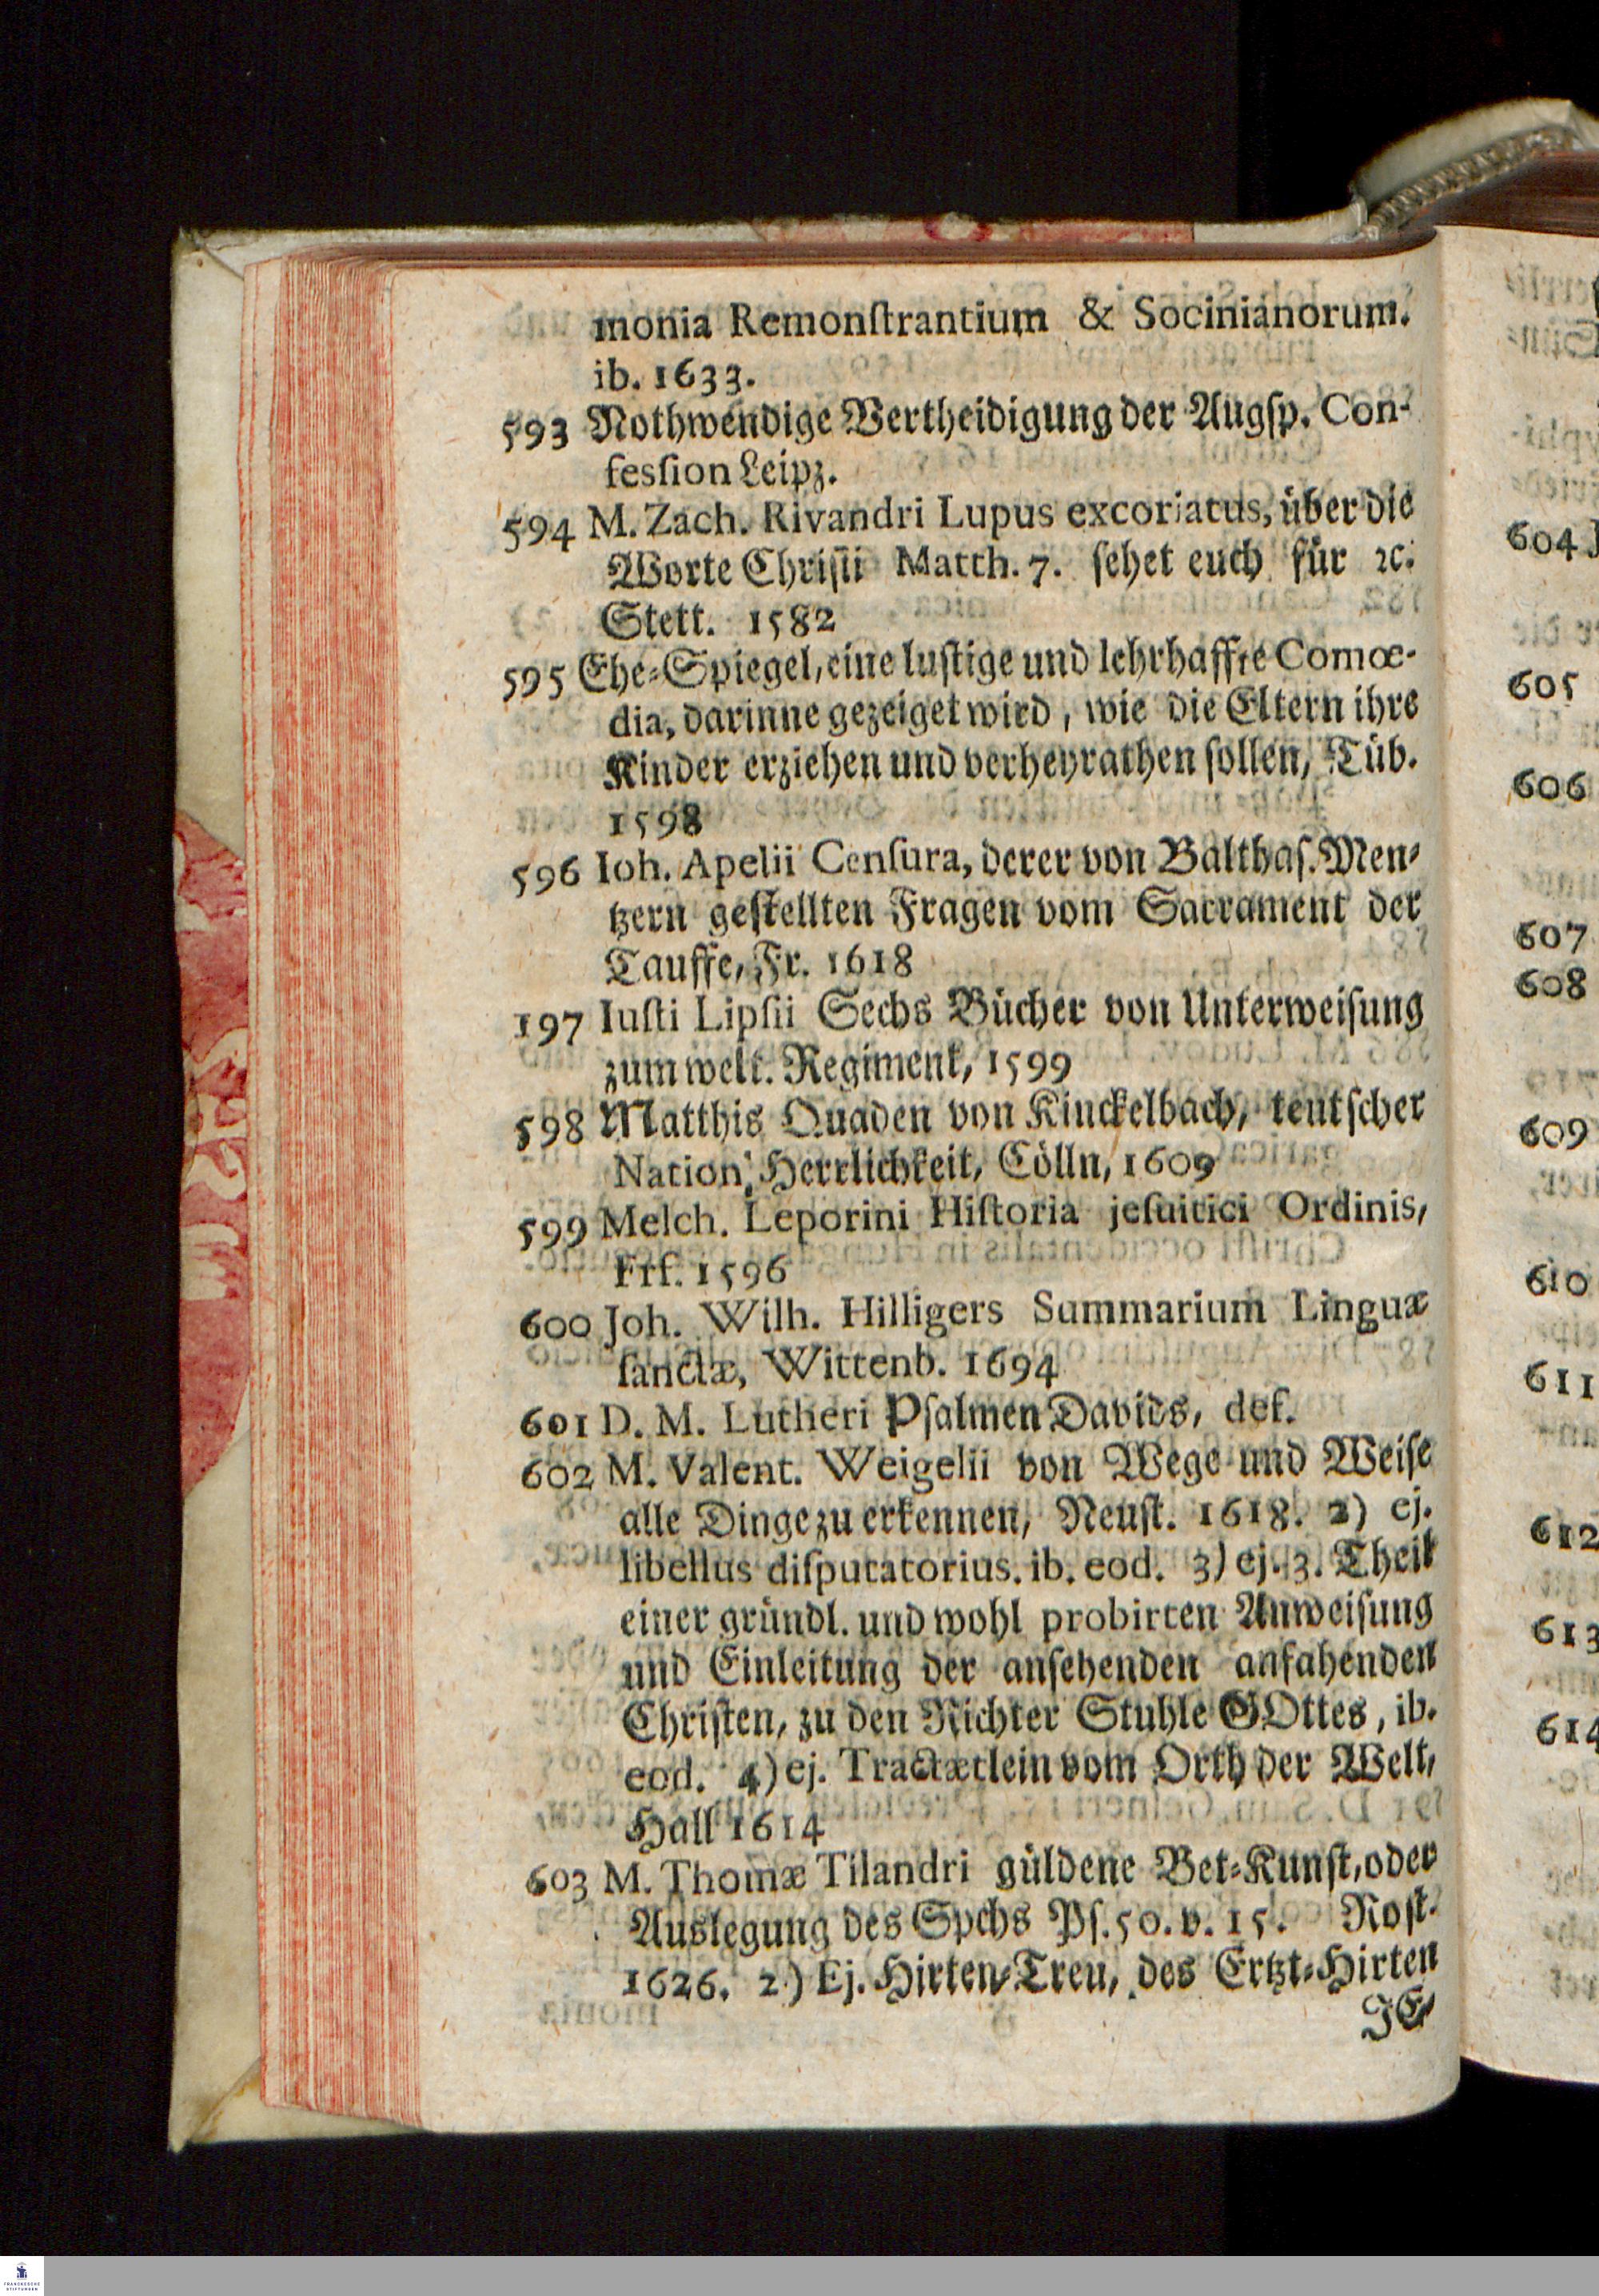 monia Remonſtrantium & Socinianorum.
ib. 1633.
593 Nothwendige Vertheidigung der Augſp. Con-
feſſion Leipz.
594 M. Zach. Rivandri Lupus excoriatus, über die
Worte Chriſti Matth. 7. ſehet euch für ꝛc.
Stett. 1582
595 Ehe-Spiegel, eine luſtige und lehrhaffte Comœ-
dia, darinne gezeiget wird, wie die Eltern ihre
Kinder erziehen und verheyrathen ſollen, Tüb.
1598
596 Ioh. Apelii Cenſura, derer von Balthaſ. Men-
tzern geſtellten Fragen vom Sacrament der
Tauffe, Fr. 1618
197 Iuſti Lipſii Sechs Bücher von Unterweiſung
zum welt. Regiment, 1599
598 Matthis Quaden von Kinckelbach, teutſcher
Nation Herrlichkeit, Cölln, 1609
599 Melch. Leporini Hiſtoria jeſuitici Ordinis,
Frf. 1596
600 Joh. Wilh. Hilligers Summarium Linguæ
ſanctæ, Wittenb. 1694
601 D. M. Lutheri Pſalmen Davids, def.
602 M. Valent. Weigelii von Wege und Weiſe
alle Dinge zu erkennen, Neuſt. 1618. 2) ej.
libellus diſputatorius. ib. eod. 3) ej. 3. Theil
einer gründl. und wohl probirten Anweiſung
und Einleitung der anſehenden anfahenden
Chriſten, zu den Richter Stuhle GOttes, ib.
eod. 4) ej. Tractætlein vom Orth der Welt,
Hall 1614
603 M. Thomæ Tilandri güldene Bet-Kunſt, oder
Auslegung des Spchs Pſ. 50. v. 15. Roſt.
1626. 2) Ej. Hirten-Treu, des Ertzt-Hirten
JE-
604
605
606
607
608
609
610
611
612
613
614
FRANCKESCHE
STIFTUNGEN